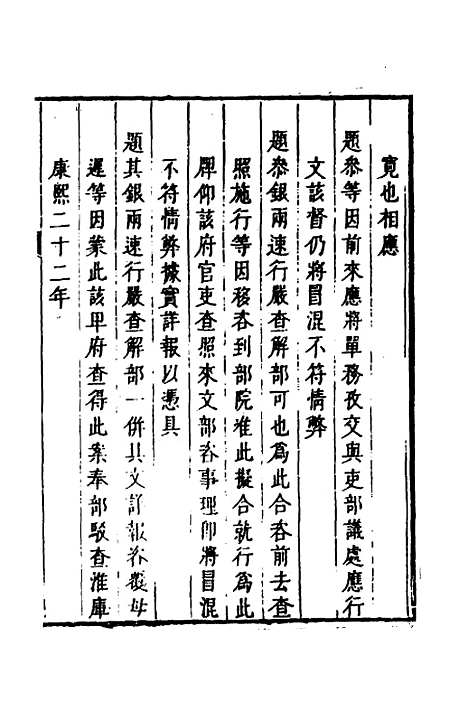 寛也相應
題叅等因前來應將單務孜交與吏部議處應行
文該督仍將冒混不符情弊
題叅銀兩速行嚴查解部可也爲此合咨前去查
照施行等因移咨到部院准此擬合就行爲此
牌仰該府官吏查照來文部咨事理卽將冒混
不符情弊據實詳報以憑具
題其銀兩速行嚴查解部一併具文詳報咨覆毋
遲等因蒙此該卑府查得此案奉部駁查淮庫
康熙二十二年